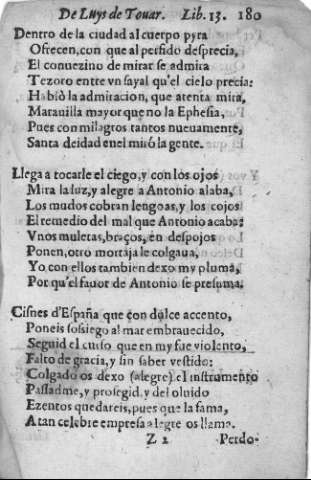 De Luys de Touar. Lib. 13. 180
Dentro de la ciudad al cuerpo pyra
Ofrecen, con que al perfido desprecia,
El conuezino de mirar se admira
Tezoro entre vn sayal qu'el cielo precia:
Hablò la admiracion, que atenta mira,
Marauilla mayor que no la Ephesia,
Pues con milagros tantos nueuamente,
Santa deidad en el mirò la gente.
Llega a tocarle el ciego, y con los ojos
Mira la luz, y alegre a Antonio alaba,
Los mudos cobran lenguas, y los cojos
El remedio del mal que Antonio acaba:
Vnos muletas, braços, en despojos
Ponen, otro mortaja le colgaua,
Yo con ellos tambien dexo my pluma,
Por qu'el fauor de Antonio se presuma.
Cisnes d'España que con dulce accento,
Poneis sosiego al mar embrauecido,
Seguid el curso que en my fue violento,
Falto de gracia, y sin saber vestido:
Colgado os dexo (alegre) el instrumento
Passadme, y prosegid, y del oluido
Ezentos quedareis, pues que la fama,
A tan celebre empresa alegre os llama.
Z 2 Perdo-